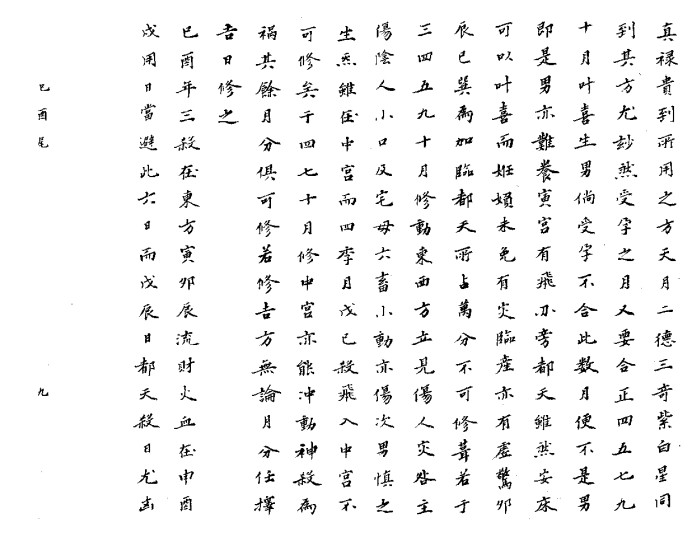 真祿貴到所用之方天月二德三奇紫白星同
到其方尤妙然受孕之月又要合正四五七九
十月叶喜生男倘受孕不合此數月便不是男
即是男亦難養寅宮有飛刃旁都天雖然安床
可以叶喜而姙娠未免有災臨產亦有虛驚卯
辰巳巽為加臨都天所占萬分不可修葺若于
三四五九十月修動東西方立見傷人災咎主
傷陰人小口及宅母六畜小動亦傷次男慎之
生炁雖在中宮而四季月戊己殺飛入中宮不
可修矣于四七十月修中宮亦能冲動神殺為
禍其餘月分俱可修若修吉方無論月分任擇
吉日修之
己酉年三殺在東方寅卯辰流財火血在申酉
戌用日當避此六日而戊辰日都天殺日尤凶
己酉尾
九